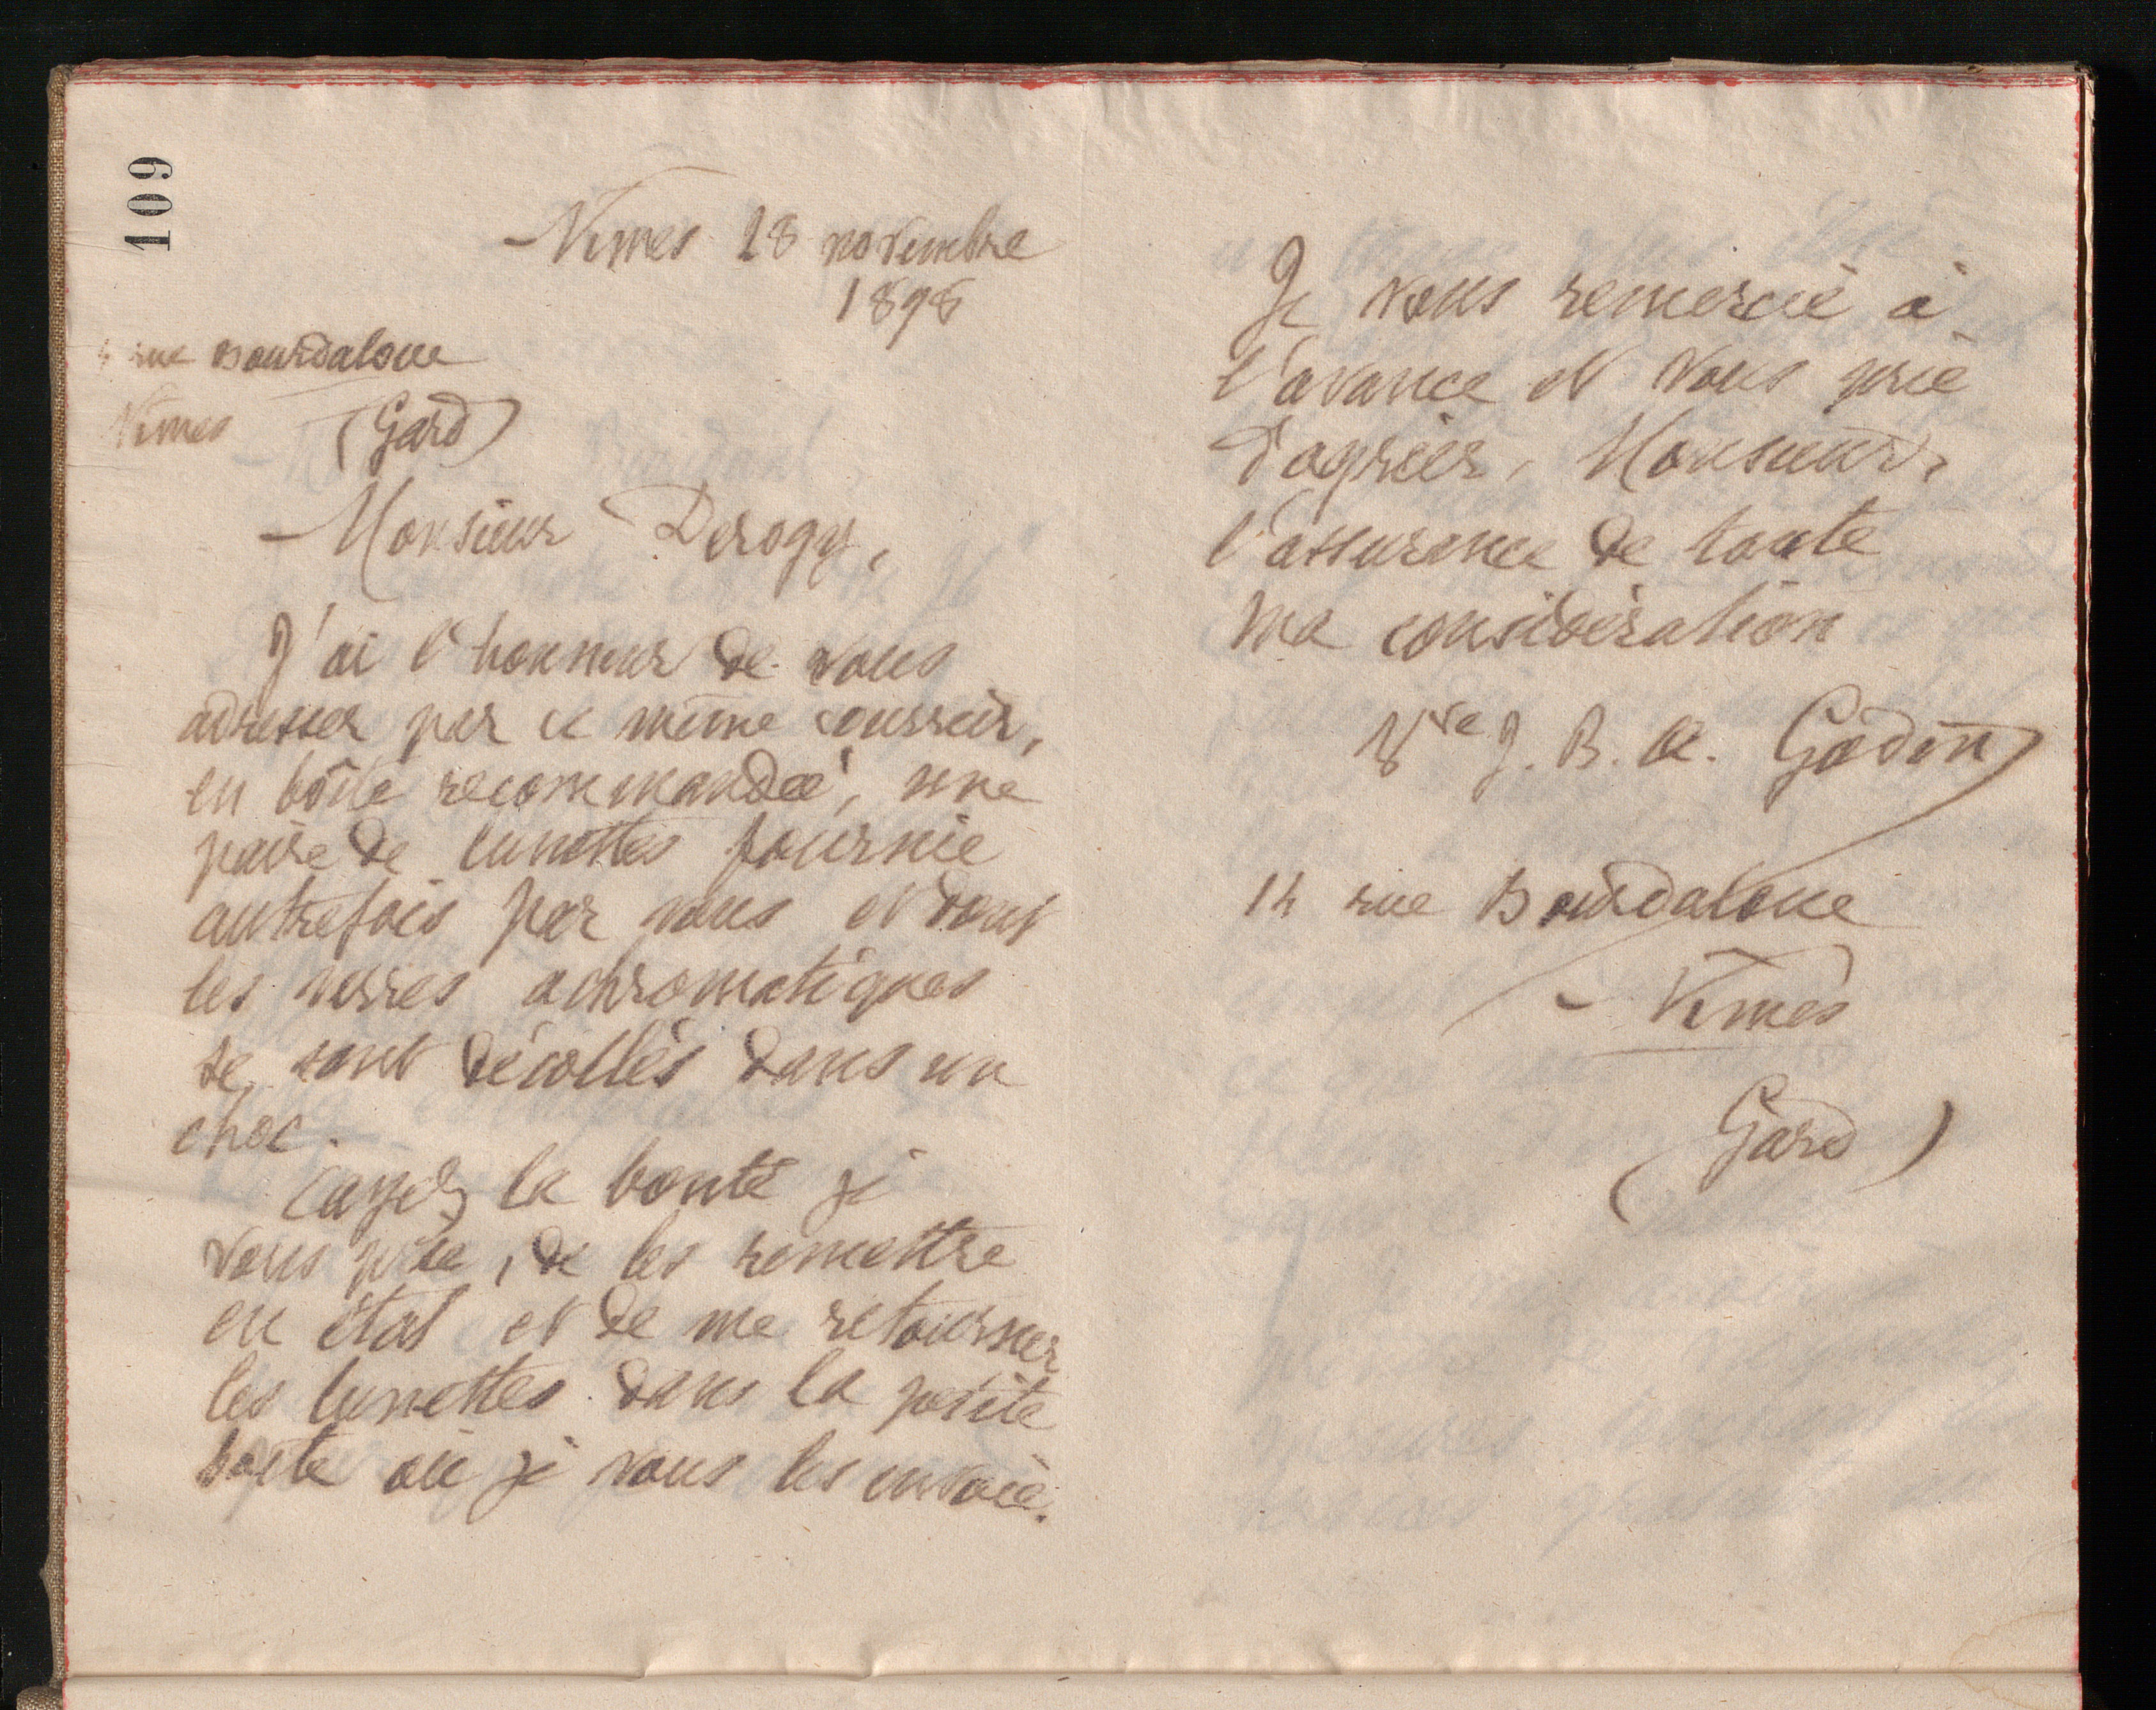 109
Nimes 28 novembre
1898
rue Bourdaloue
Nimes (Gard)
Monsieur Derogy,
J'ai l'honneur de vous
adresser par ce même courrier,
en boîte recommandée, une
paire de lunettes fournie
autrefois par vous et dont
les verres achromatiques
se sont décollés dans un
choc.
Ayez la bonté je
vous prie, de les remettre
en état et de me retourner
les lunettes dans la petite
boîte où je vous les envoie.
Je vous remercie à
l'avance et vous prie
d'agréer, Monsieur,
l'assurance de toute
ma considération
Vve J. B. A. Godin
14 rue Bourdaloue
Nimes
(Gard)